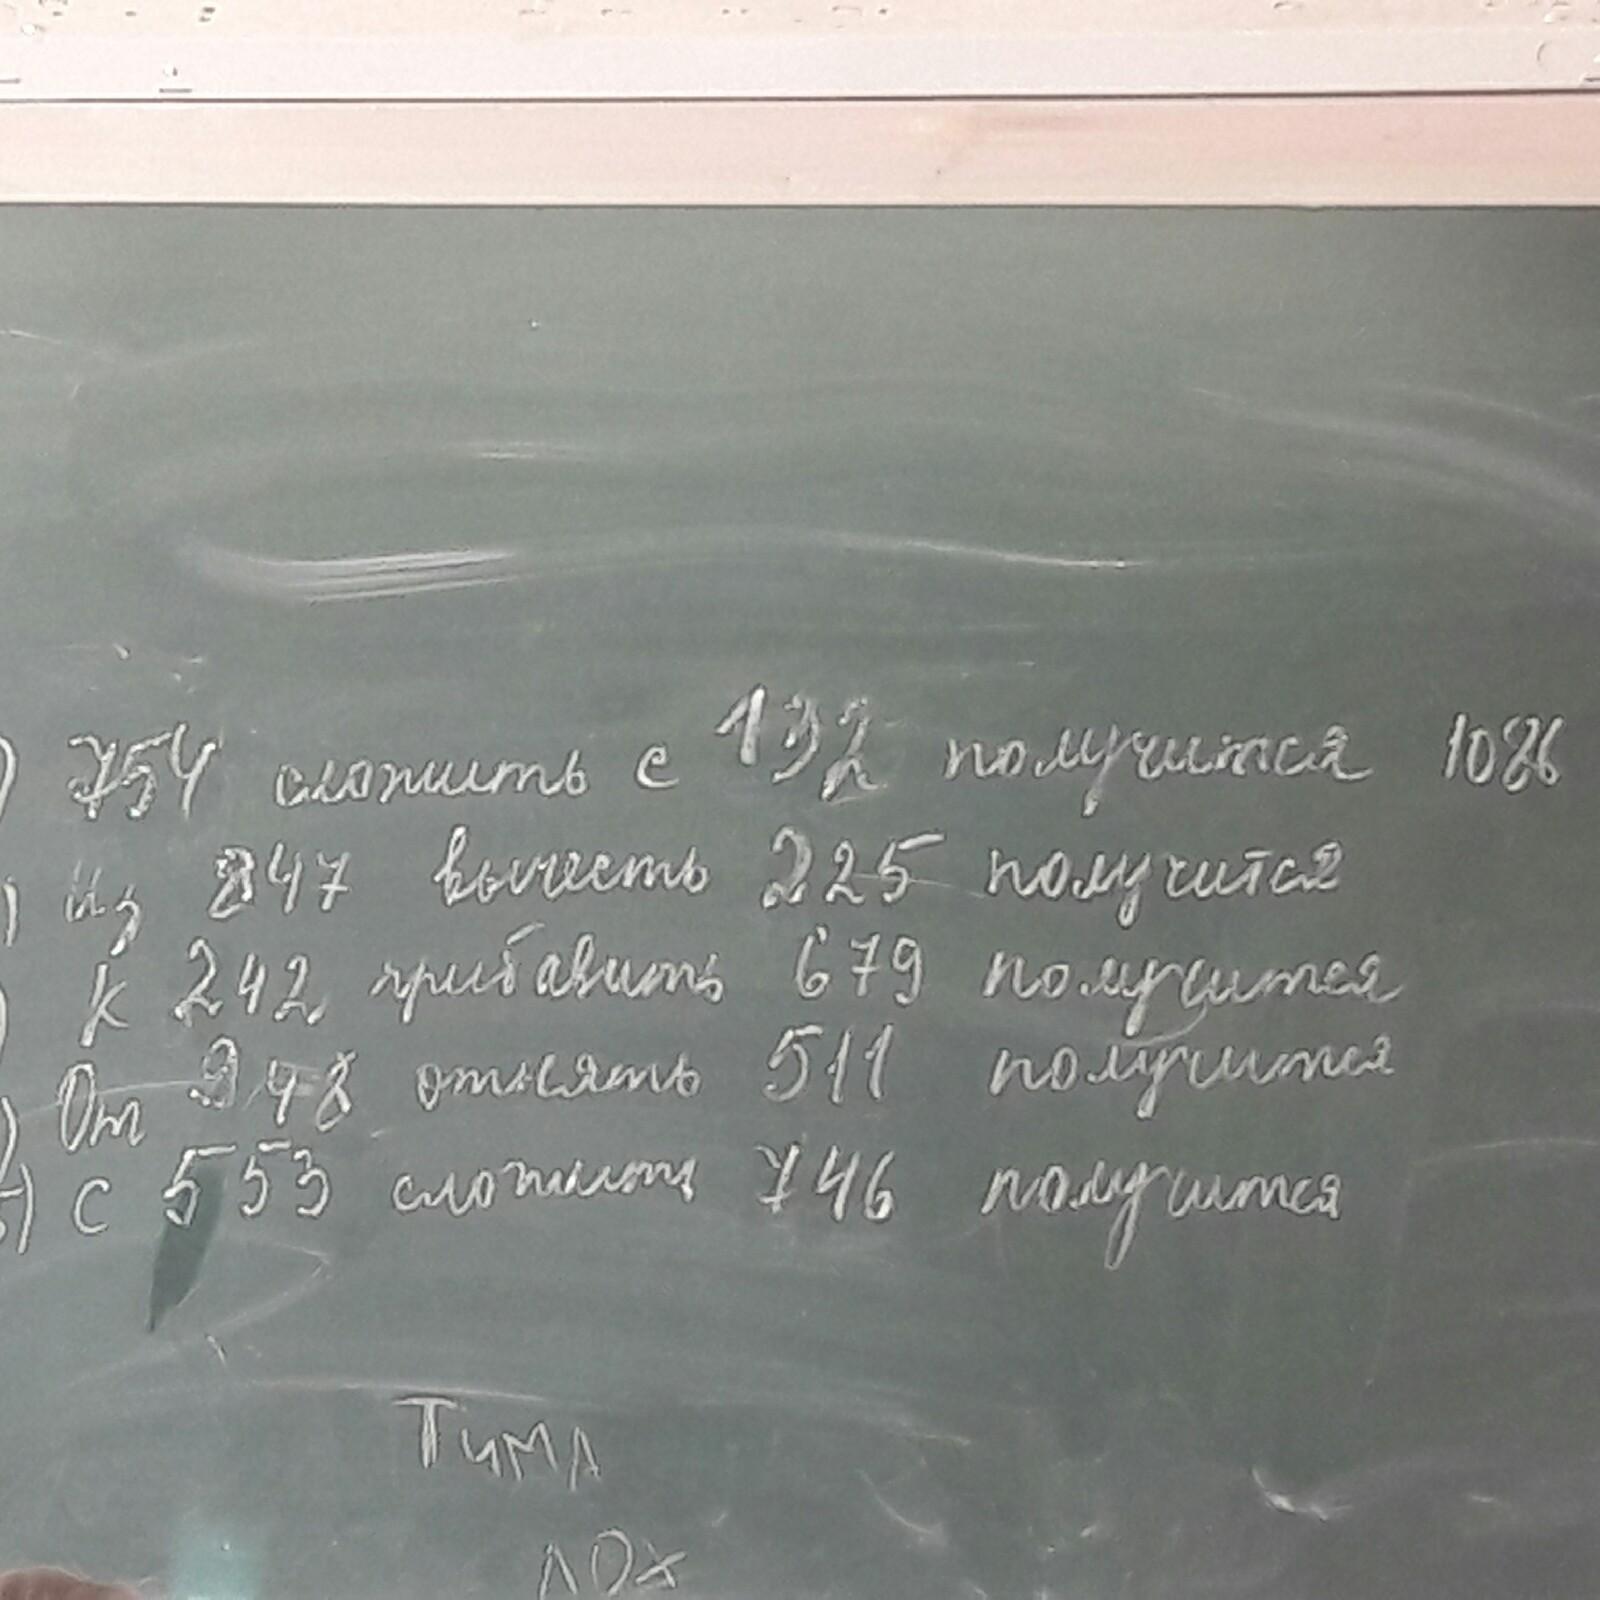 ) 754 сложить с 132 получится 1086
) Из 847 вычесть 225 получится
) К 242 прибавить 679 получится
) От 948 отнять 511 получится
5) С 553 сложить 746 получится
Тима
лох